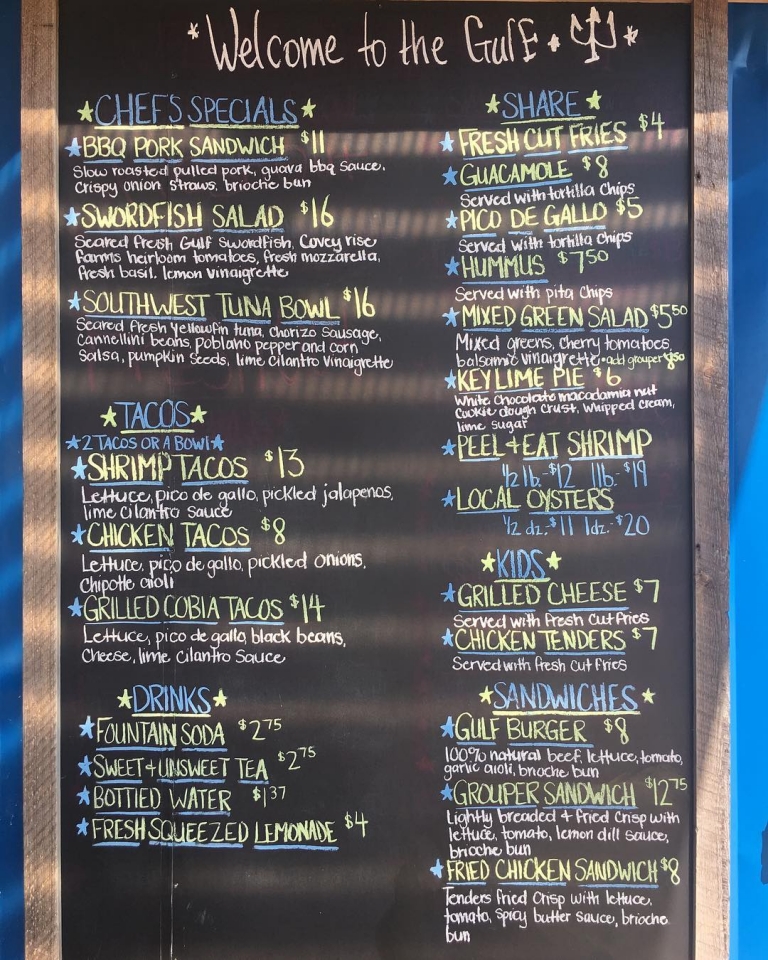 *Welcome to the Gulf.*
CHEF'S SPECIALS
BBQ PORK SANDWICH $11
Slow roasted pulled pork, guava bbq sauce,
Crispy onion straws, brioche bun
SWORDFISH SALAD $16
Seared fresh Gulf swordfish, Covey rise
farms heirloom tomatoes, fresh mozzarella,
fresh basil, lemon vinaigrette
SOUTHWEST TUNA BOWL $16
Seared fresh yellowfin tuna, chorizo sausage,
Cannellini beans, poblano pepper and corn
Salsa, pumpkin seeds, lime cilantro vinaigrette
TACOS
2 TACOS OR A BOWL
SHRIMP TACOS $13
Lettuce, pico de gallo, pickled jalapenos,
lime cilantro sauce
CHICKEN TACOS $8
Lettuce, pico de gallo, pickled onions,
Chipotle aioli
GRILLED COBIA TACOS $14
Lettuce, pico de gallo, black beans,
Cheese, lime cilantro sauce
DRINKS
FOUNTAIN SODA $2.75
SWEET + UNSWEET TEA $2.75
BOTTLED WATER $1.37
FRESH SQUEEZED LEMONADE $4
SHARE
FRESH CUT FRIES $4
GUACAMOLE $8
Served with tortilla chips
PICO DE GALLO $5
Served with tortilla chips
HUMMUS $7.50
Served with pita chips
MIXED GREEN SALAD $5.50
Mixed greens, cherry tomatoes,
balsamic vinaigrette • add grouper
KEY LIME PIE $6
White chocolate macadamia nut
Cookie dough crust, whipped cream,
lime sugar
PEEL + EAT SHRIMP
1/2 lb.-$12 1lb.-$19
LOCAL OYSTERS
1/2 dz.-$11 1dz.-$20
KIDS
GRILLED CHEESE $7
Served with fresh cut fries
CHICKEN TENDERS $7
Served with fresh cut fries
SANDWICHES
GULF BURGER $8
100% natural beef, lettuce, tomato,
garlic aioli, brioche bun
GROUPER SANDWICH $12.75
Lightly breaded + fried crisp with
lettuce, tomato, lemon dill sauce,
brioche bun
FRIED CHICKEN SANDWICH $8
Tenders fried crisp with lettuce,
tomato, spicy butter sauce, brioche
bun